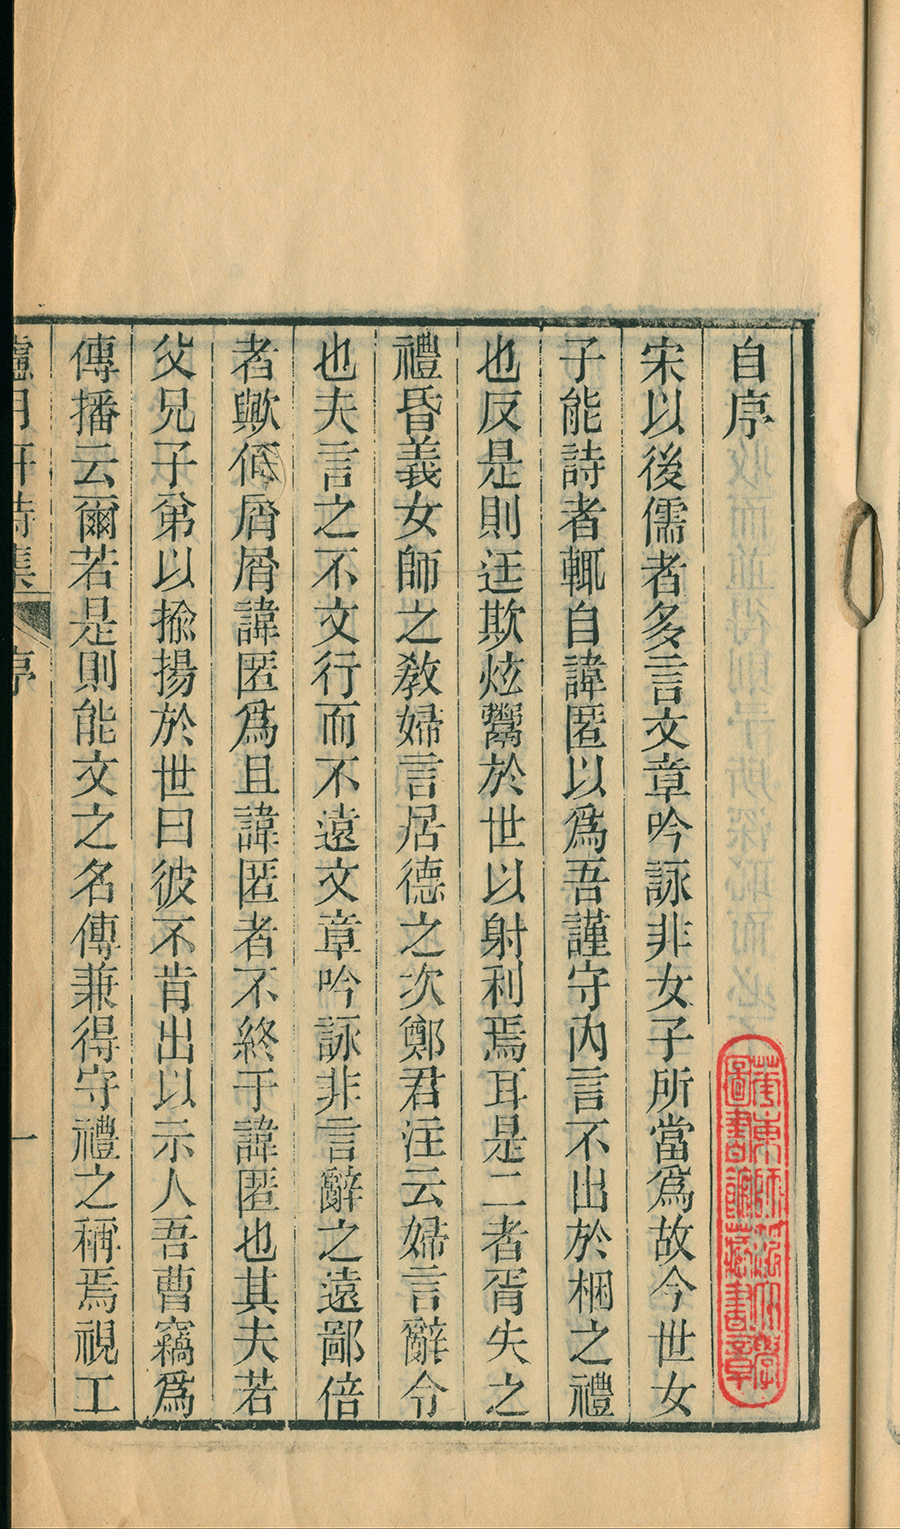 自序
宋以後儒者多言文章吟詠非女子所當爲故今世女
子能詩者輒自諱匿以爲吾謹守內言不出於梱之禮
也反是則迋欺炫鬻於世以射利焉耳是二者胥失之
禮昏義女師之敎婦言居德之次鄭君注云婦言辭令
也夫言之不文行而不遠文章吟詠非言辭之遠鄙倍
者歟何屑屑諱匿爲且諱匿者不終于諱匿也其夫若
父兄子弟以揄揚於世曰彼不肯出以示人吾曹竊爲
傳播云爾若是則能文之名傳兼得守禮之稱焉視工
月軒詩集
序
一
東師範大學
圖書館藏書章